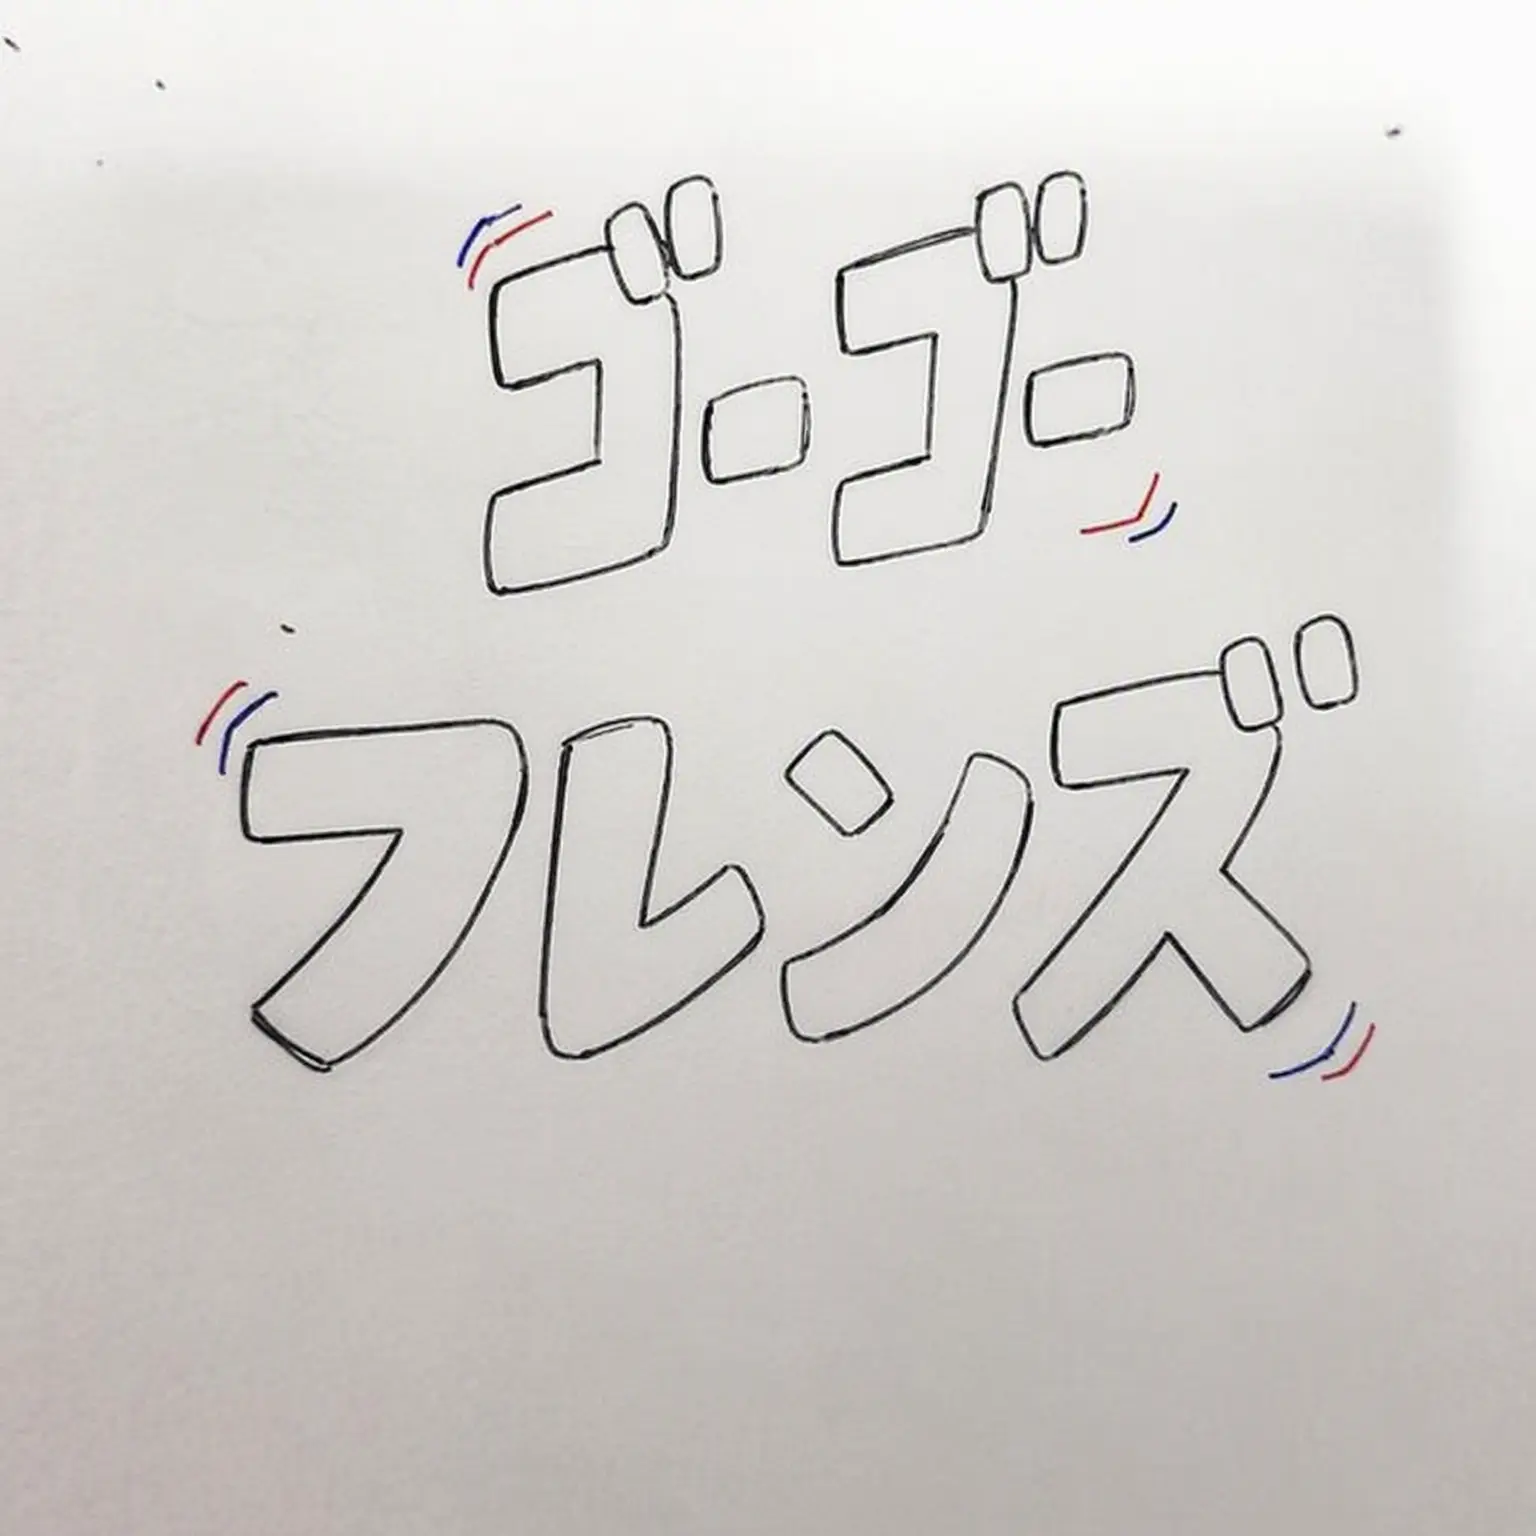 ゴーゴー
フレンズ